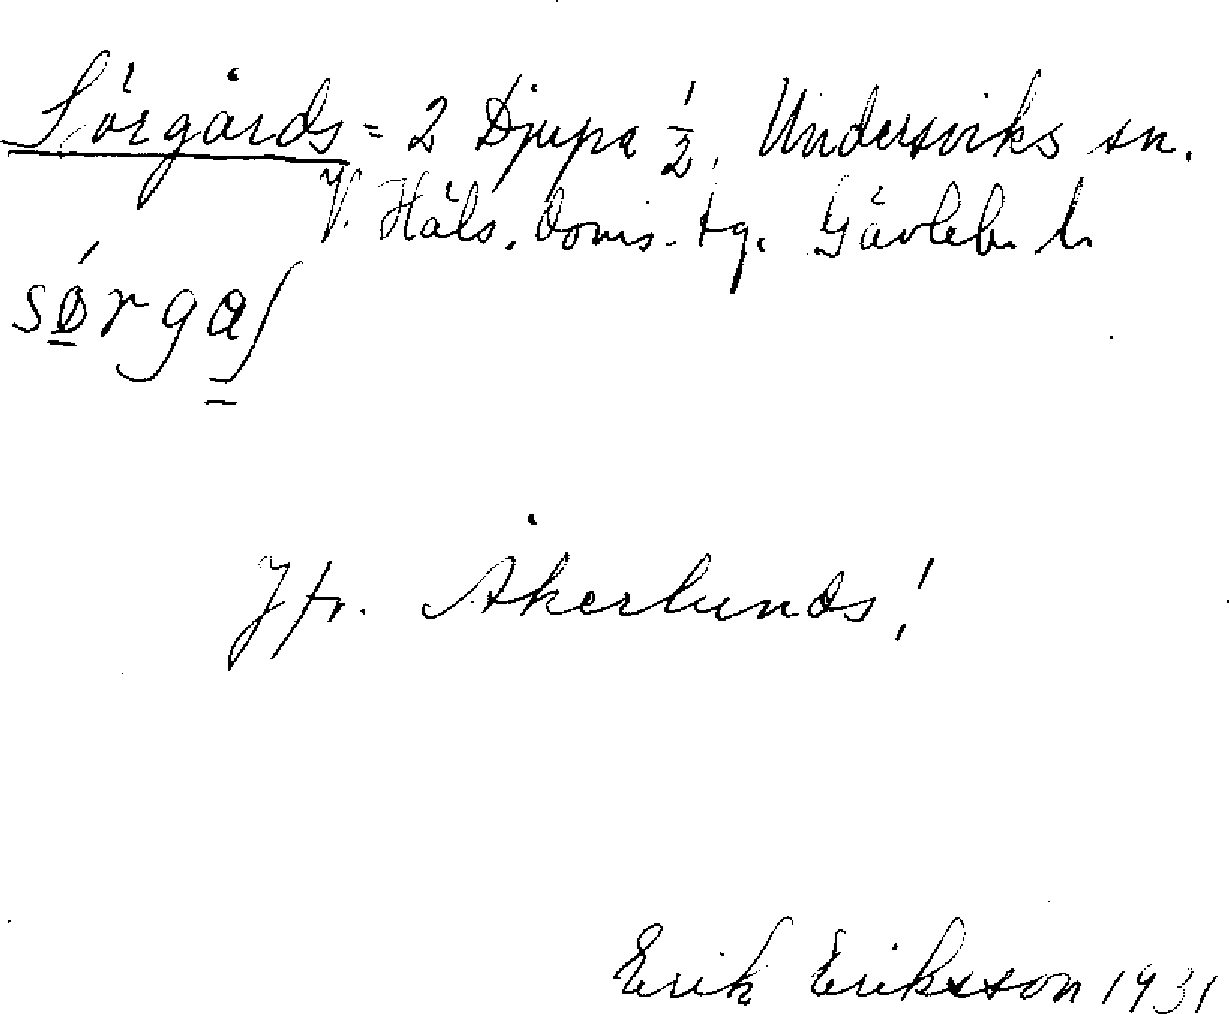 Sörgårds = 2 Djupa 1/2, Undersviks sn.
V. Häls. doms. tg. Gävleb. l.
sǿ̱rga̱ʃ
Jfr. Åkerlunds!
Erik Eriksson 1931